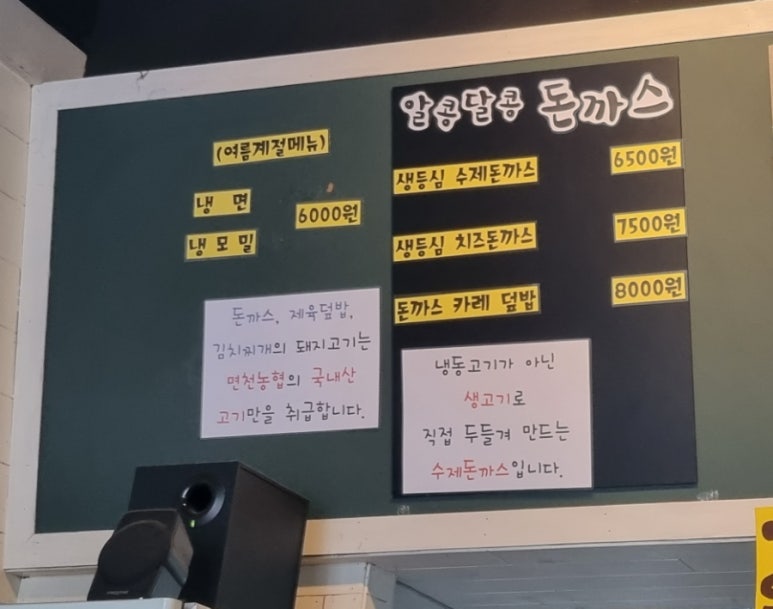 (여름계절메뉴)
냉 면
냉 모 밀
6000원
돈까스, 제육덮밥,
김치찌개의 돼지고기는
면천농협의 국내산
고기만을 취급합니다.
알콩달콩 돈까스
생등심 수제돈까스 6500원
생등심 치즈돈까스 7500원
돈까스 카레 덮밥 8000원
냉동고기가 아닌
생고기로
직접 두들겨 만드는
수제돈까스입니다.